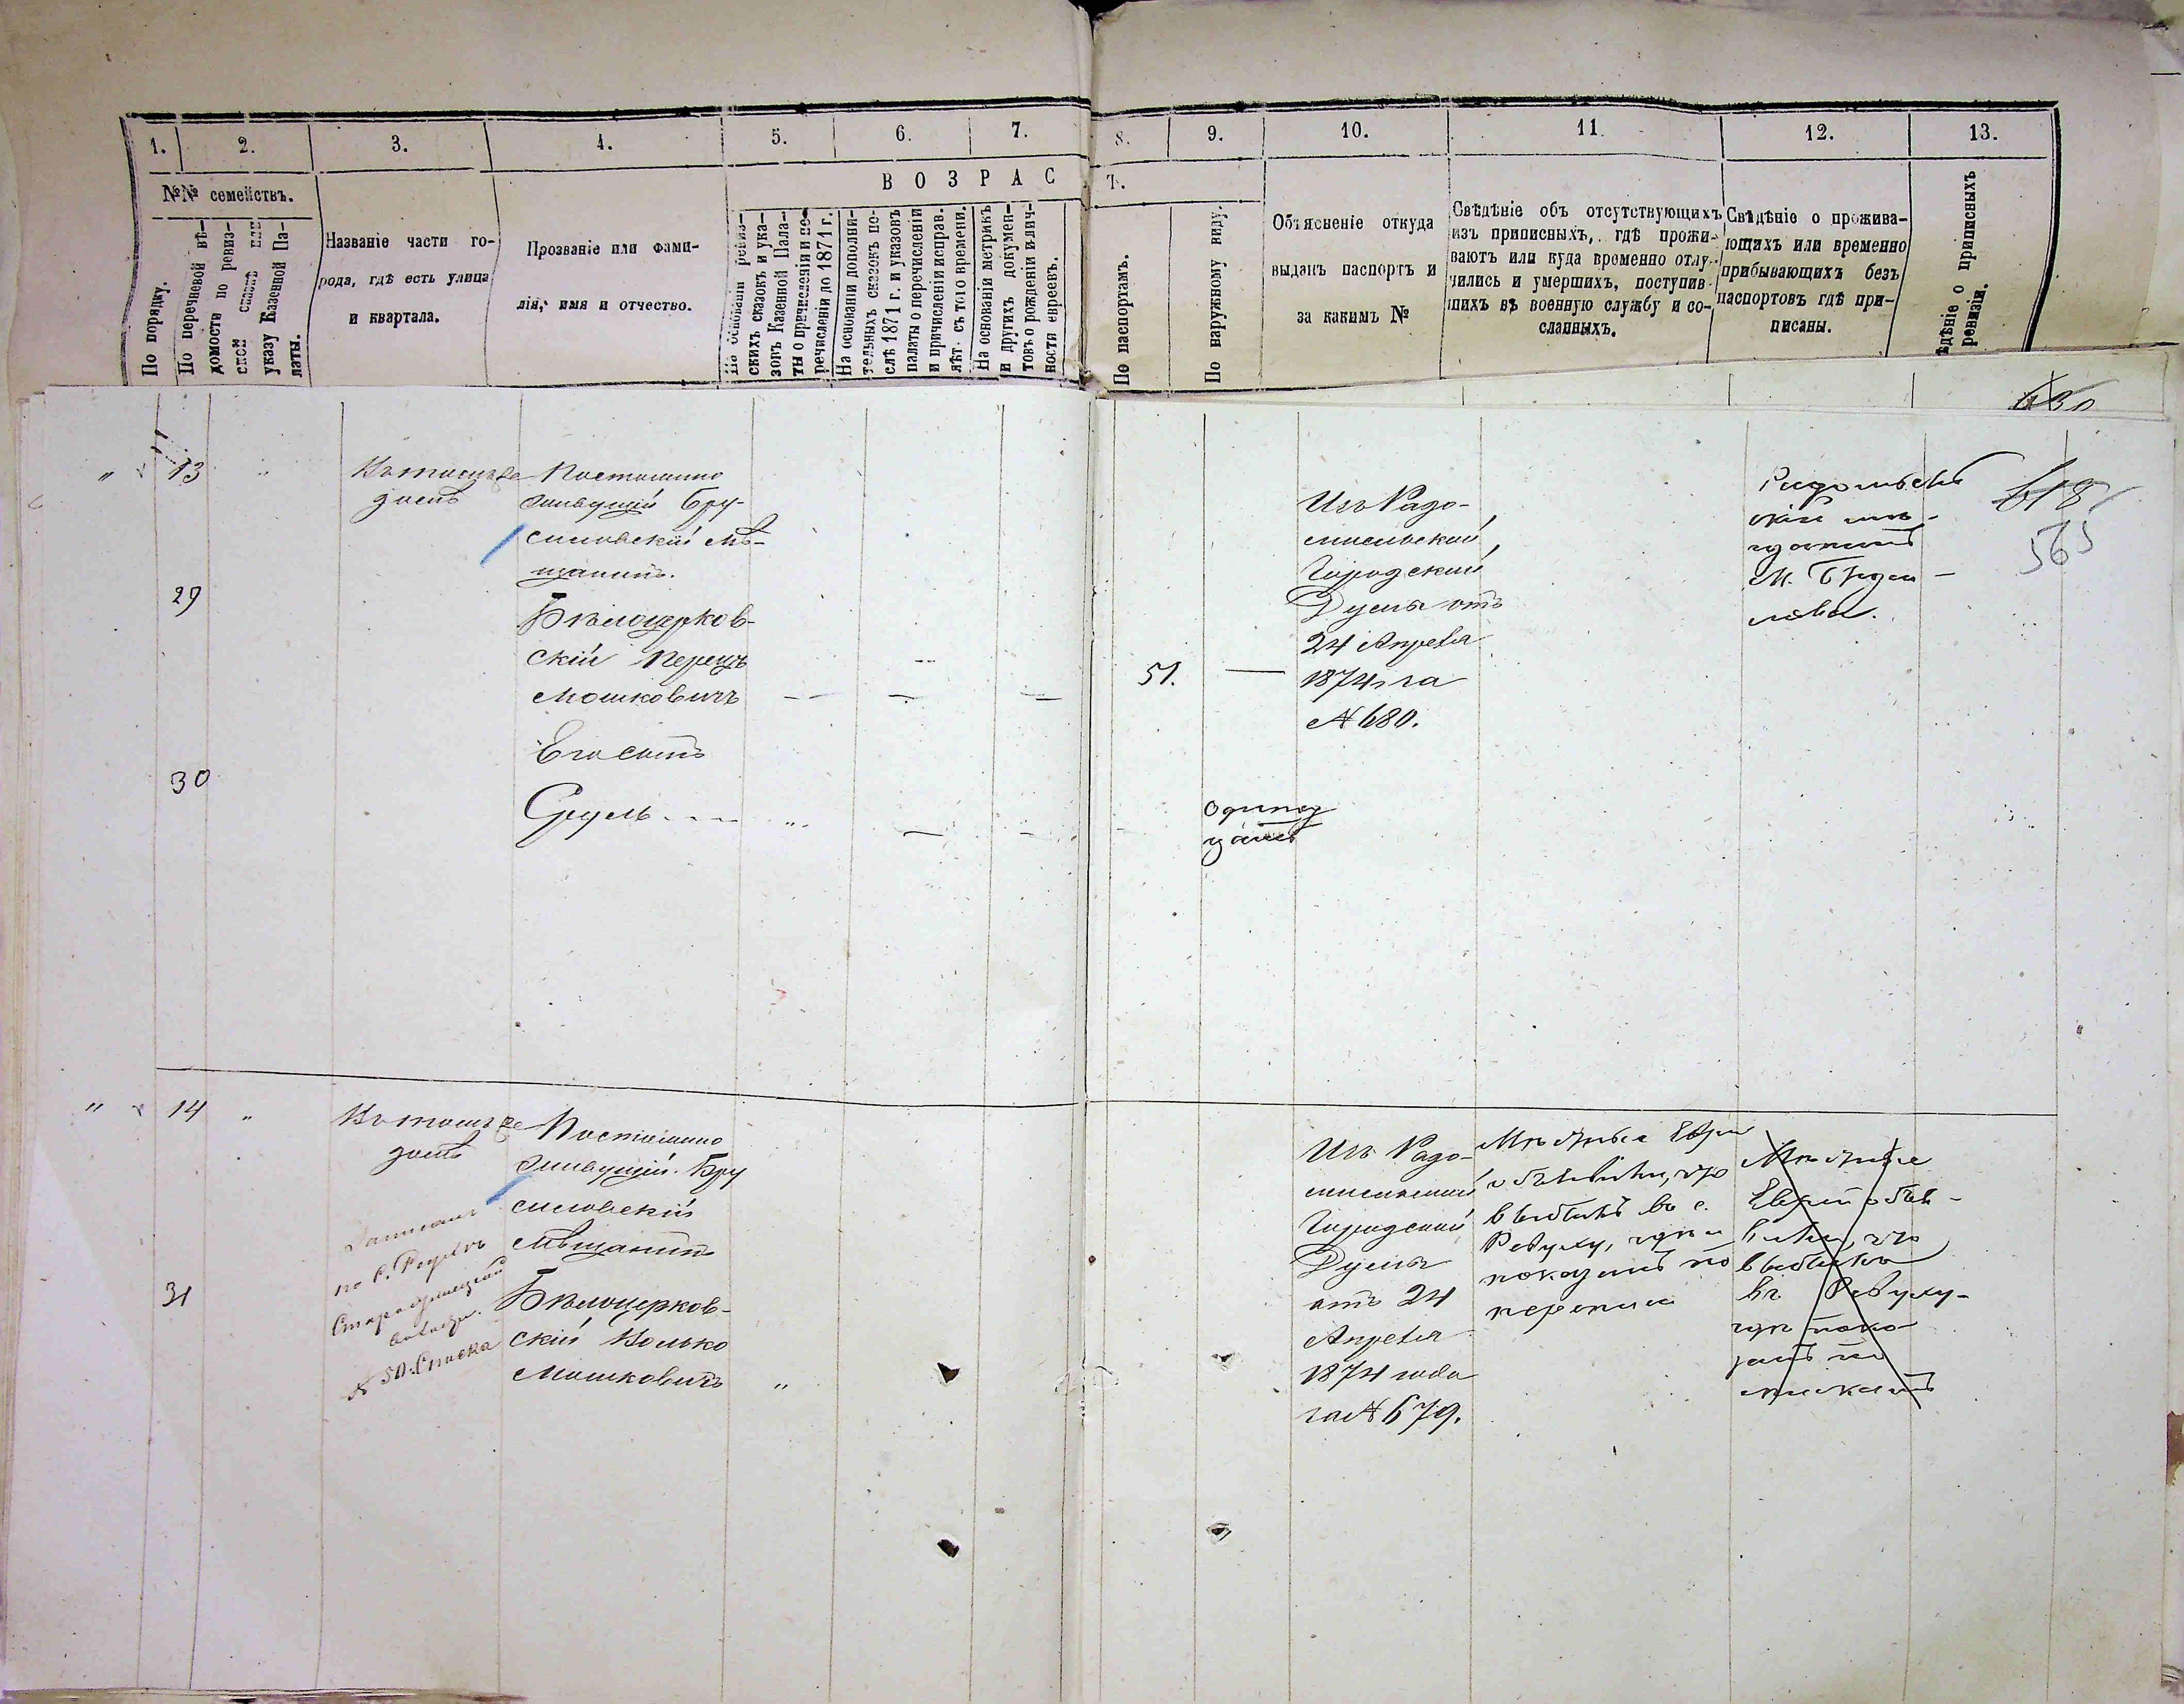 1.
2.
3.
4.
5.
6.
7.
8.
9.
10.
11.
12.
13.
№№ семействъ.
В О З Р А С
Т.
По порядку.
По перечневой вѣ-
домости по ревиз-
ской или
указу Казенной Па-
латы.
Названіе части го-
рода, гдѣ есть улица
и квартала.
Прозваніе или фами-
лія, имя и отчество.
На основаніи ревиз-
скихъ сказокъ и ука-
зовъ Казенной Пала-
ты о причисленіи и пе-
речисленіи до 1871 г.
На основаніи дополни-
тельныхъ сказокъ по-
слѣ 1871 г. и указовъ
палаты о перечисленіи
и причисленіи исправ.
лѣт. съ того времени.
На основаніи метрикъ
и другихъ докумен-
товъ о рожденіи и лич-
ности евреевъ.
По паспортамъ.
По наружному виду.
Объясненіе откуда
выданъ паспортъ и
за какимъ №
Свѣдѣніе объ отсутствующихъ
изъ приписныхъ, гдѣ прожи-
ваютъ или куда временно отлу-
чились и умершихъ, поступив-
шихъ въ военную службу и со-
сланныхъ.
Свѣдѣніе о прожива-
ющихъ или временно
прибывающихъ безъ
паспортовъ гдѣ при-
писаны.
ѣдѣніе о приписныхъ
ревизіи.
13
Постоянно
живущій Бру-
силовскій мѣ-
щанинъ.
29
Бѣлоцерков-
скій Перецъ
Мошковичъ
Его сынъ
30
Сруль
51.
одинад
цать
Изъ Радо-
мысльской
Городской
Думы отъ
24 Апреля
1874 за
№ 680.
мѣ-
щанинъ
м. Бруси-
лова.
618
565
14
Постоянно
живущій Бру
силовскій
Мѣщанинъ
31
Бѣлоцерков-
скій Волько
Мошковичъ
Записанъ
№ 50 Списка
Изъ Радо-
мысльской
Городской
Думы
отъ 24
Апреля
1874 года
за № 679.
Мѣстные Евреи
объявили, что
выбылъ въ с.
Ревуху, гдѣ и
показанъ по
переписи
Мѣстные
Евреи объя-
вили, что
выбылъ
въ Ревуху-
гдѣ пока-
занъ по